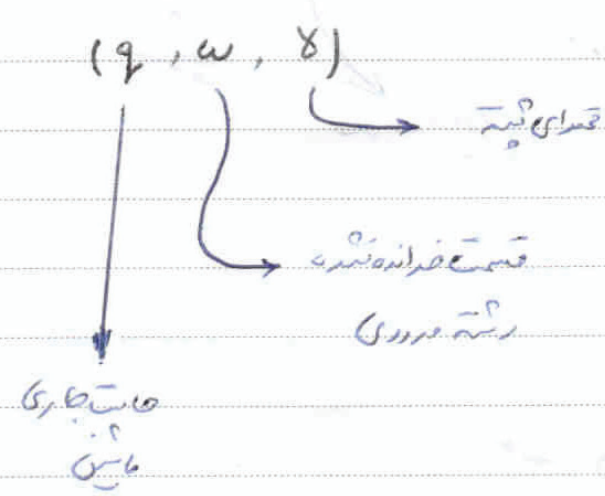 (q, w, γ)
محتوای پشته
قسمت خوانده نشده
رشته ورودی
حالت جاری
ماشین